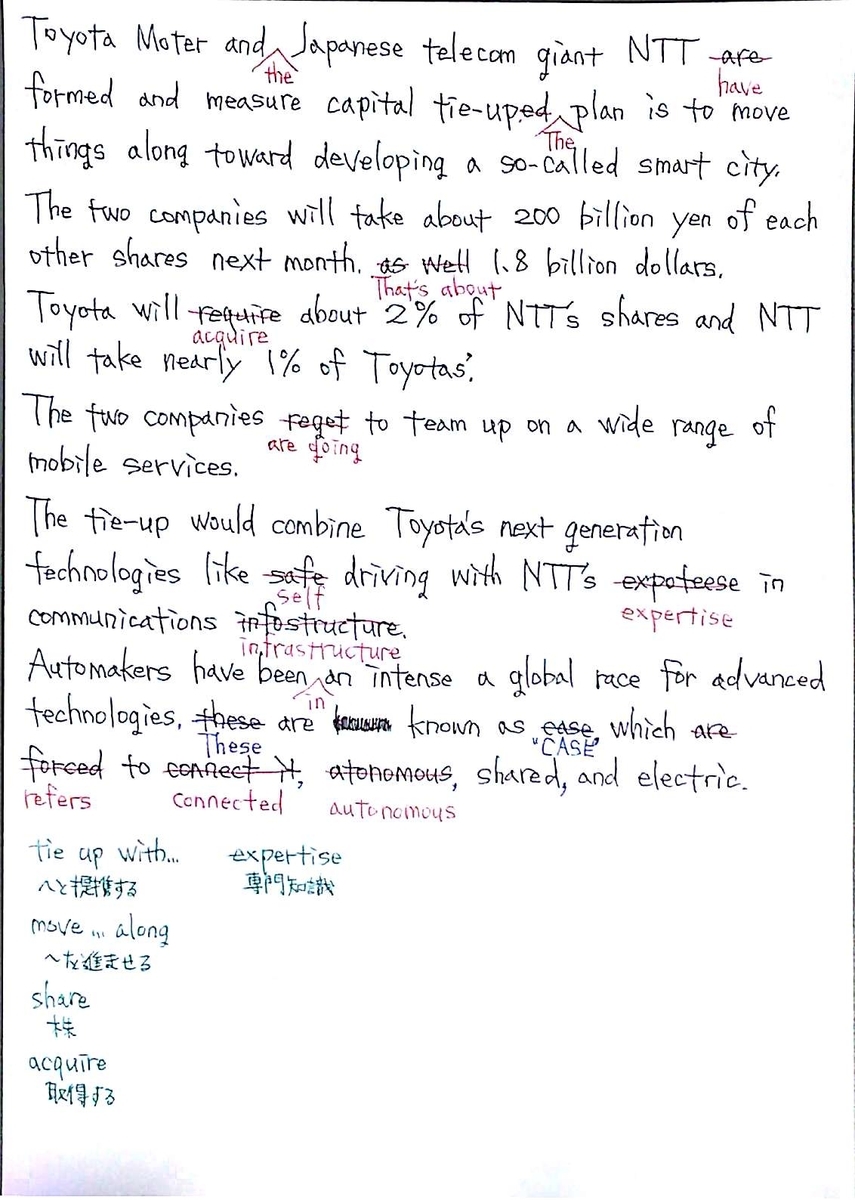 Toyota Moter and Japanese telecom giant NTT are
the
have
formed and measure capital tie-uped plan is to move
The
things along toward developing a so-called smart city.
The two companies will take about 200 billion yen of each
other shares next month. as well 1.8 billion dollars.
That's about
Toyota will require about 2% of NTT's shares and NTT
acquire
will take nearly 1% of Toyotas'.
The two companies reget to team up on a wide range of
are going
mobile services.
The tie-up would combine Toyota's next generation
technologies like safe driving with NTT's expoteese in
self
expertise
communications infostructure.
infrastructure
Automakers have been an intense a global race for advanced
in
technologies, these are known as ease, which are
These
"CASE"
forced to connect it, atonomous, shared, and electric.
refers
connected
autonomous
tie up with... expertise
〜と提携する 専門知識
move ... along
〜を進ませる
share
株
acquire
取得する